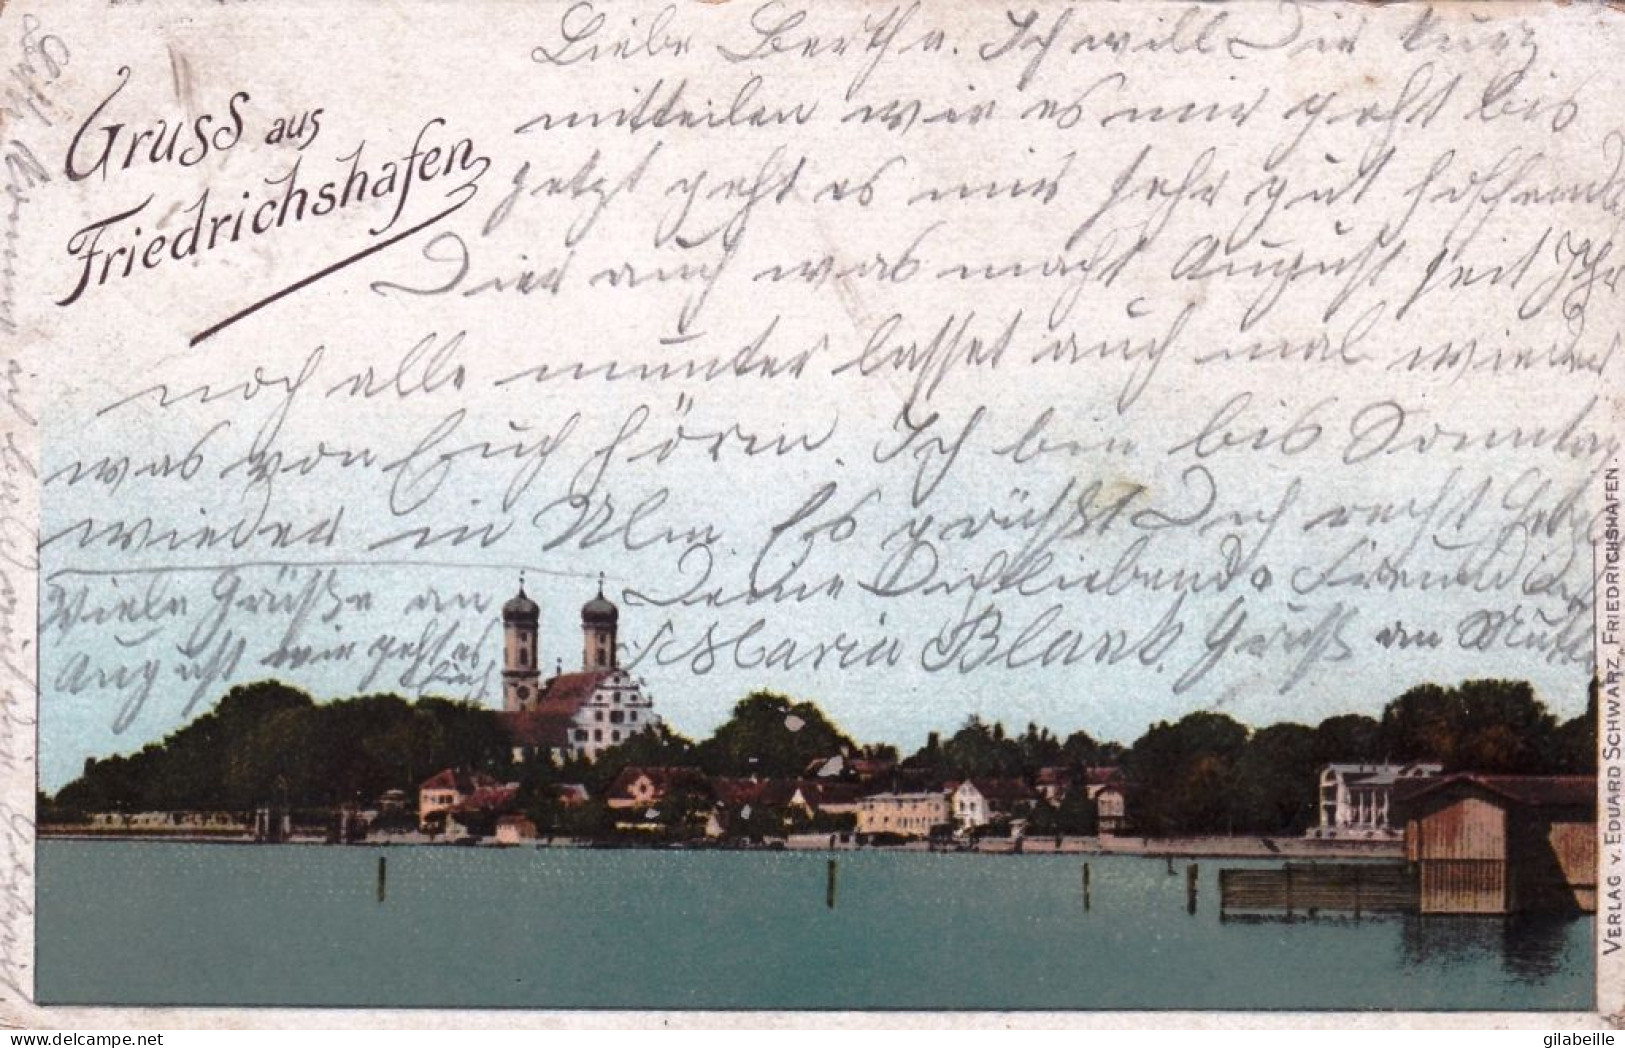 Gruss aus
Friedrichshafen
Liebe Bertha. Ich will Dir kurz
mitteilen wie es mir geht bis
jetzt geht es mir sehr gut hoffend
Dir auch was macht August seit Ihr
noch alle munter lasset auch mal wieder
was von Euch hören. Ich bin bis Sonntag
wieder in Ulm. Es grüßt Dich recht
Deine Dichliebende Freundin
Maria Blank. Gruß an Mutter
Viele Grüße an
August wie geht es
Euch
VERLAG v. EDUARD SCHWARZ, FRIEDRICHSHAFEN.
gilabeille